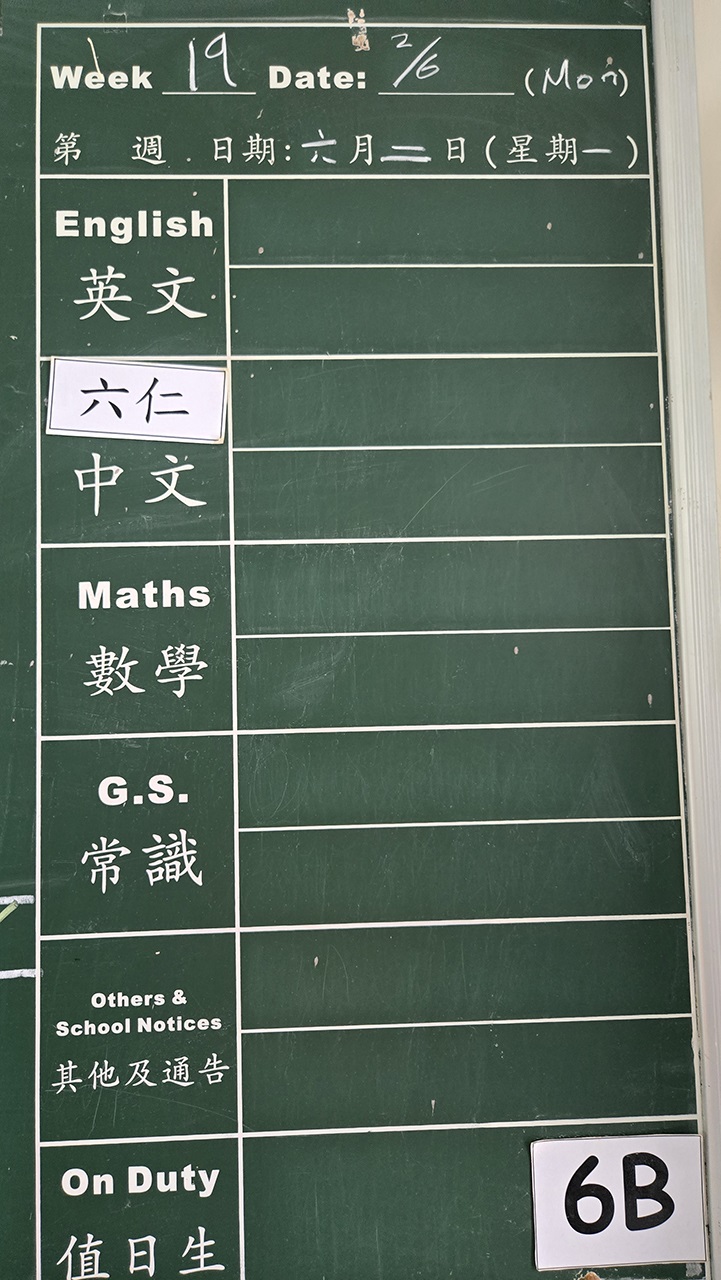 Week 19 Date: 2/6 (Mon)
第 週 . 日期:六月二日(星期一)
English
英文
六仁
中文
Maths
數學
G.S.
常識
Others &
School Notices
其他及通告
On Duty
6B
值日生